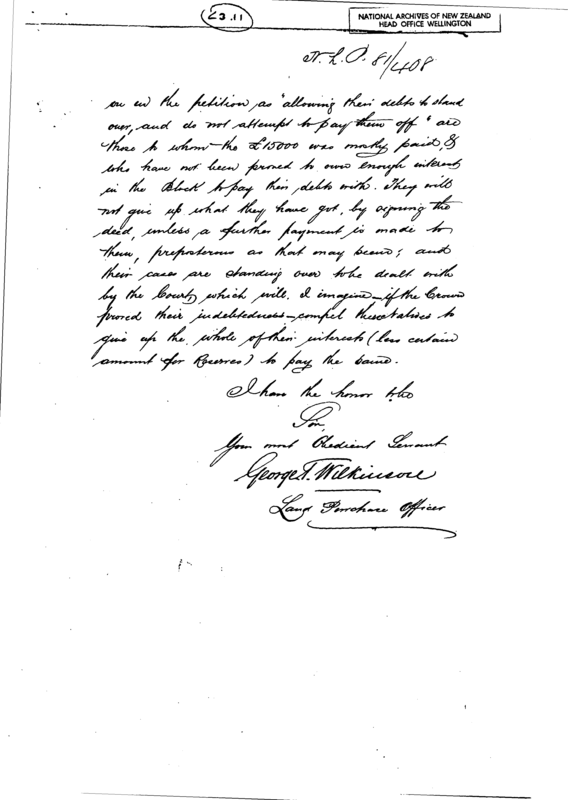 23.11
NATIONAL ARCHIVES OF NEW ZEALAND
HEAD OFFICE WELLINGTON
N. L. P. 81/408
on in the petition, as "allowing their debts to stand
over, and do not attempt to pay them off" are
those to whom the £15000 was mostly paid, &
who have not been proved to own enough interest
in the Block to pay their debts with. They will
not give up what they have got, by signing the
deed, unless a further payment is made to
them, preposterous as that may seem; and
their cases are standing over to be dealt with
by the Court, which will, I imagine – if the Crown
proved their indebtedness – compel these Natives to
give up the whole of their interests (less certain
amount for Reserves) to pay the same.
I have the honor to be
Sir,
Your most Obedient Servant
George T. Wilkinson
Land Purchase Officer